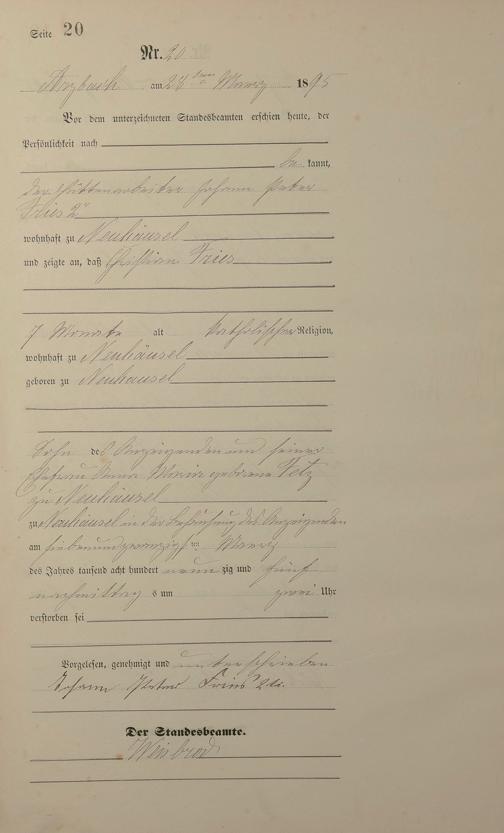 Seite 20
Nr. 20
Arzbach am 28 ten März 1895
Vor dem unterzeichneten Standesbeamten erschien heute, der
Persönlichkeit nach
be kannt,
der Hüttenarbeiter Johann Peter
Fries 2r
wohnhaft zu Neuhäusel
und zeigte an, daß Christian Fries
7 Monate alt katholischer Religion,
wohnhaft zu Neuhäusel
geboren zu Neuhäusel
Sohn des Anzeigenden und seiner
Ehefrau Anna Maria geborene
zu Neuhäusel
zu Neuhäusel in der Behausung des Anzeigenden
am siebenundzwanzigsten März
des Jahres tausend acht hundert neun zig und fünf
nachmittag s um zwei Uhr
verstorben sei
Vorgelesen, genehmigt und unterschrieben
Johann Peter Fries 2r
Der Standesbeamte.
Weisbrod